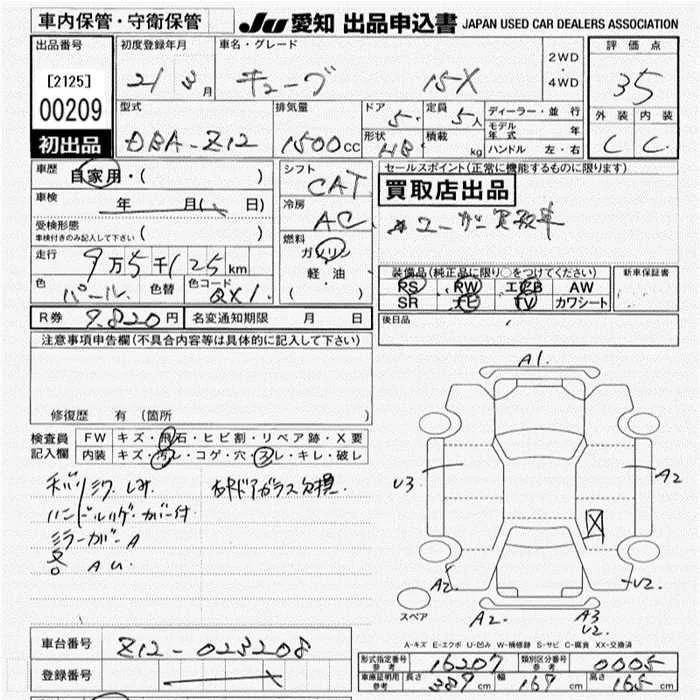 車内保管・守衛保管
JU 愛知 出品申込書 JAPAN USED CAR DEALERS ASSOCIATION
出品番号
[2125]
00209
初出品
初度登録年月
21 3月
車名・グレード
キューブ 15X
2WD
・
4WD
評価点
35
外装 内装
C C
型式
DBA-Z12
排気量
1500cc
ドア 5
定員 5人
形状 HB
積載 kg
ディーラー・並行
モデル年式 年
ハンドル 左・右
車歴
自家用・( )
車検
年 月( 日)
受検形態
車検付きのみ記入して下さい ( )
走行
9万5千125km
色 パール 色替 色コード QX1
シフト
CAT
冷房
AC
燃料
ガソリン
軽油
( )
セールスポイント(正常に機能するものに限ります)
買取店出品
ユーザー買取車
装備品(純正品に限り○をつけてください)
PS PW エアB AW
SR ナビ TV カワシート
新車保証書
後日品
R券 9,820円 名変通知期限 月 日
注意事項申告欄(不具合内容等は具体的に記入して下さい)
修復歴 有 (箇所 )
検査員記入欄
FW キズ・飛石・ヒビ割・リペア跡・X要
内装 キズ・汚レ・コゲ・穴・スレ・キレ・破レ
ハンドルハゲ・カバー付
ミラーカバーA
各 AU
A1
U3
A2
A2
U2
A2
A3
U2
スペア
A-キズ E-エクボ U-凹み W-補修跡 S-サビ C-腐食 XX-交換済
車台番号 Z12-023208
登録番号
形式指定番号 参考 16207
類別区分番号 参考 0005
車庫証明用 参考 長さ 389cm 幅 169cm 高さ 165cm